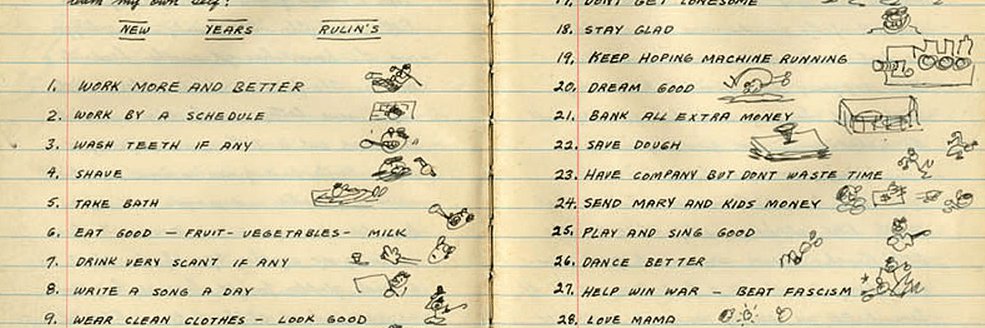 my own self!
NEW YEARS RULIN'S
1. WORK MORE AND BETTER
2. WORK BY A SCHEDULE
3. WASH TEETH IF ANY
4. SHAVE
5. TAKE BATH
6. EAT GOOD — FRUIT - VEGETABLES - MILK
7. DRINK VERY SCANT IF ANY
8. WRITE A SONG A DAY
9. WEAR CLEAN CLOTHES - LOOK GOOD
17. DONT GET LONESOME
18. STAY GLAD
19. KEEP HOPING MACHINE RUNNING
20. DREAM GOOD
21. BANK ALL EXTRA MONEY
22. SAVE DOUGH
23. HAVE COMPANY BUT DONT WASTE TIME
24. SEND MARY AND KIDS MONEY
25. PLAY AND SING GOOD
26. DANCE BETTER
27. HELP WIN WAR - BEAT FASCISM
28. LOVE MAMA